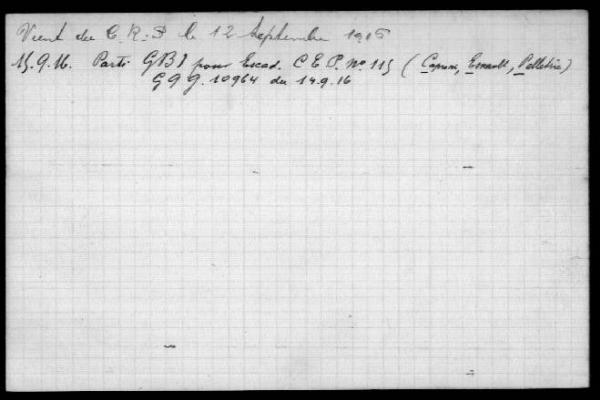 Vient du C.R.P le 12 Septembre 1916
15.9.16. Parti GB1 pour Escad. C E P. No 115 (Caproni, Esnault, Pelletrie)
G Q G. 10964 du 14.9.16